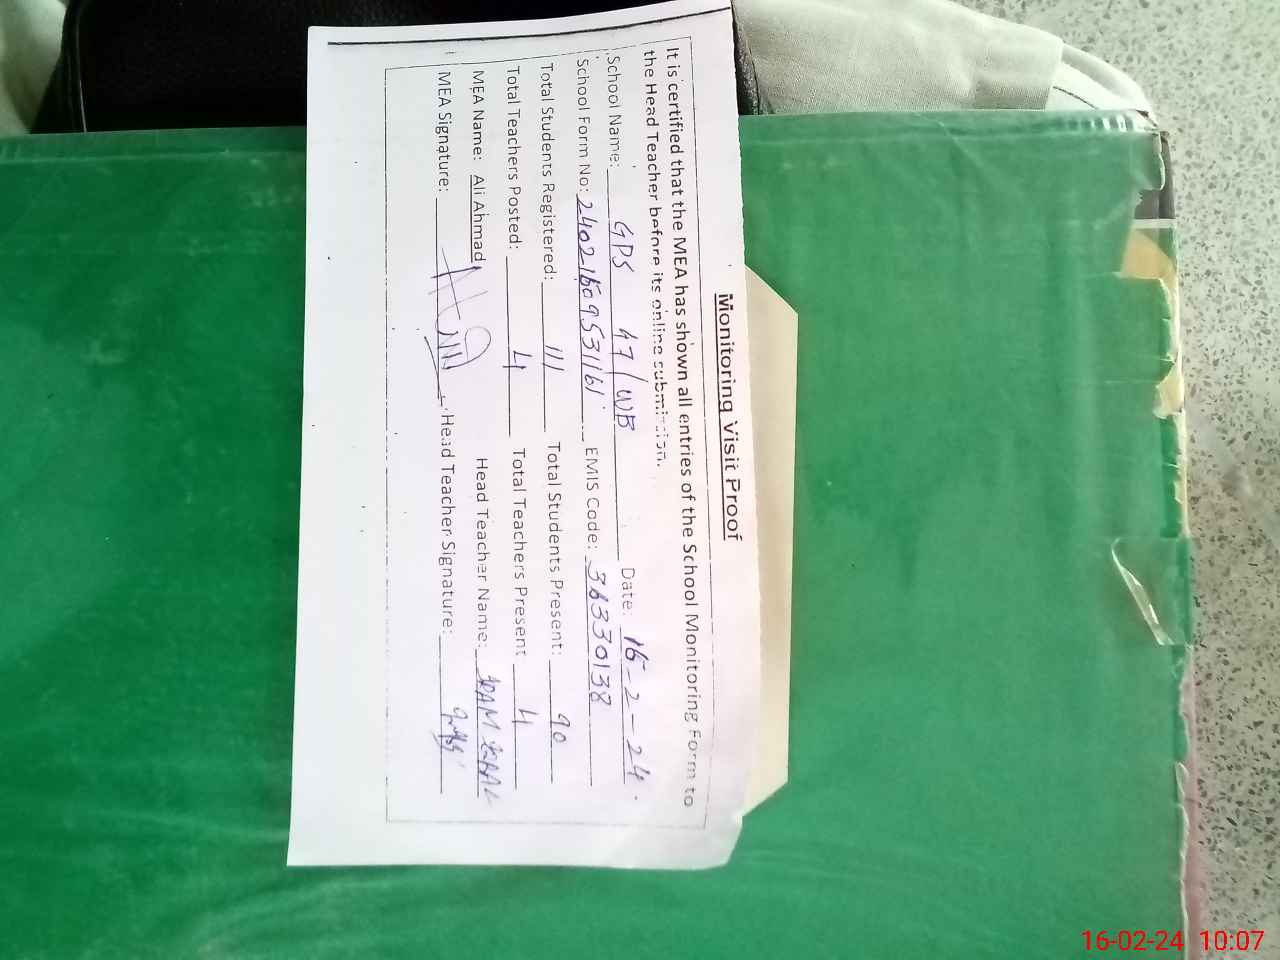 Monitoring Visit Proof
It is certified that the MEA has shown all entries of the School Monitoring Form to
the Head Teacher before its online submission.
School Name: GPS 47/WB Date: 16-2-24.
School Form No: 24021609531161 EMIS Code: 36330138
Total Students Registered: 111 Total Students Present: 90
Total Teachers Posted: 4 Total Teachers Present 4
MEA Name: Ali Ahmad Head Teacher Name:
MEA Signature: Head Teacher Signature:
16-02-24 10:07